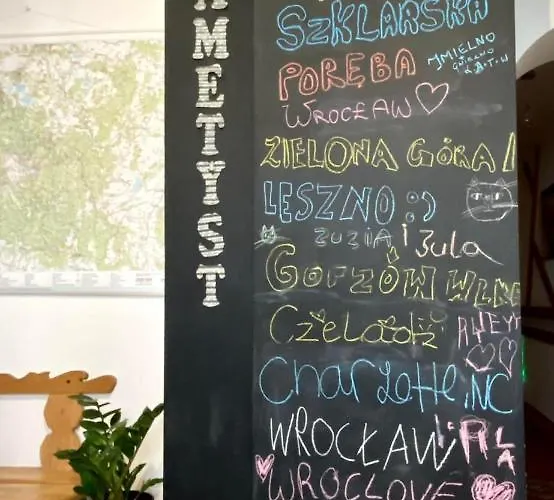 AMETYST
SZKLARSKA
PORĘBA
WROCŁAW
ZIELONA GÓRA
LESZNO :)
ZUZIA i Zula
GORZÓW WLK
Czeladź
Charlotte, NC
WROCŁAW
WROCLOVE